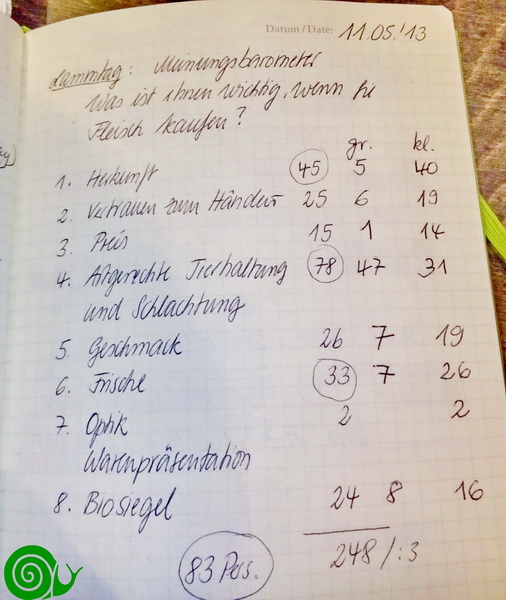 Datum / Date: 11.05.'13
Lammtag: Meinungsbarometer
Was ist Ihnen wichtig, wenn Sie
Fleisch kaufen?
gr. kl.
1. Herkunft 45 5 40
2. Vertrauen zum Händler 25 6 19
3. Preis 15 1 14
4. Artgerechte Tierhaltung 78 47 31
und Schlachtung
5. Geschmack 26 7 19
6. Frische 33 7 26
7. Optik 2 2
Warenpräsentation
8. Biosiegel 24 8 16
83 Pers. 248 / :3